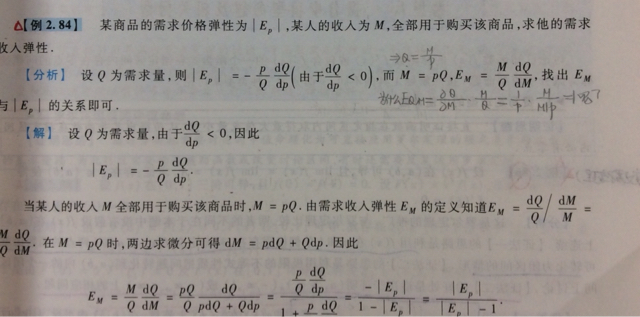 △【例 2.84】 某商品的需求价格弹性为 |E_p|,某人的收入为 M,全部用于购买该商品,求他的需求
收入弹性.
⇒Q = M/p
【分析】 设 Q 为需求量,则 |E_p| = - p/Q dQ/dp (由于 dQ/dp < 0),而 M = pQ, E_M = M/Q dQ/dM, 找出 E_M
与 |E_p| 的关系即可.
为什么 = ∂Q/∂M · M/Q = 1/p · M/(M/p) = 1呢?
【解】 设 Q 为需求量,由于 dQ/dp < 0,因此
|E_p| = - p/Q dQ/dp.
当某人的收入 M 全部用于购买该商品时, M = pQ. 由需求收入弹性 E_M 的定义知道 E_M = dQ/Q / dM/M =
M/Q dQ/dM. 在 M = pQ 时,两边求微分可得 dM = pdQ + Qdp. 因此
E_M = M/Q dQ/dM = pQ/Q dQ/(pdQ + Qdp) = (p/Q dQ/dp)/(1 + p/Q dQ/dp) = -|E_p|/(1 - |E_p|) = |E_p|/(|E_p| - 1).